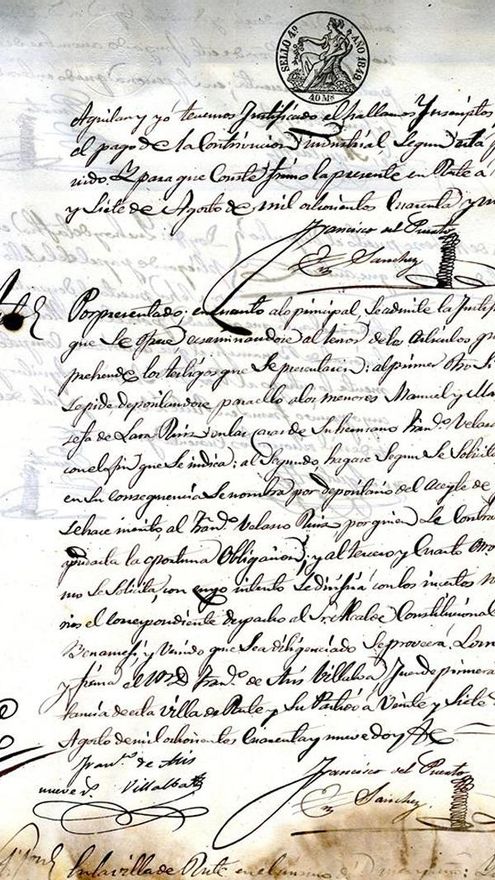 SELLO 4º AÑO 1849.
40 Ms
Aguilar y yó tenemos Justificado el hallarnos Inscriptos
al pago de la Contribucion Industrial segun
vido. Y para que Conste firmo la presente en Rute á
y Siete de Agosto de mil ochocientos Cuarenta y
Francisco del Puerto
Sanchez
Por presentado: en cuanto a lo principal, se admite la Justifi
que se ofrece examinandose al tenor de los articulos que
prehende los testigos que se presentaren: al primer otro Si
se pide depositandose para ello a los menores Manuel y Ma
sefa de Lara Ruiz en las casas de su hermano Franº Velasc
con el fin que se indica: al Segundo, hagase Segun se Solicita
en su consequencia se nombra por depositario del aceyte de
se hace merito al Franº Velasco Ruiz, por quien se Contra
apudacta la oportuna Obligacion; y al tercero y Cuarto otro
mo se solicita, con cuyo intento se dirijirá con los insertos
rios el correspondiente despacho al Sr Alcalde Constitucional
Benameji; y Venido que sea diligenciado se proveerá. Lo
y firma el Franº de Asis Villalba Juez de primera
tancia de esta Villa de Rute y Su Partido á Veinte y Siete
Agosto de mil ochocientos Cuarenta y nueve doy fe
Franº de Asis
Villalba
Francisco del Puerto
Sanchez
En la villa de Rute en el mismo